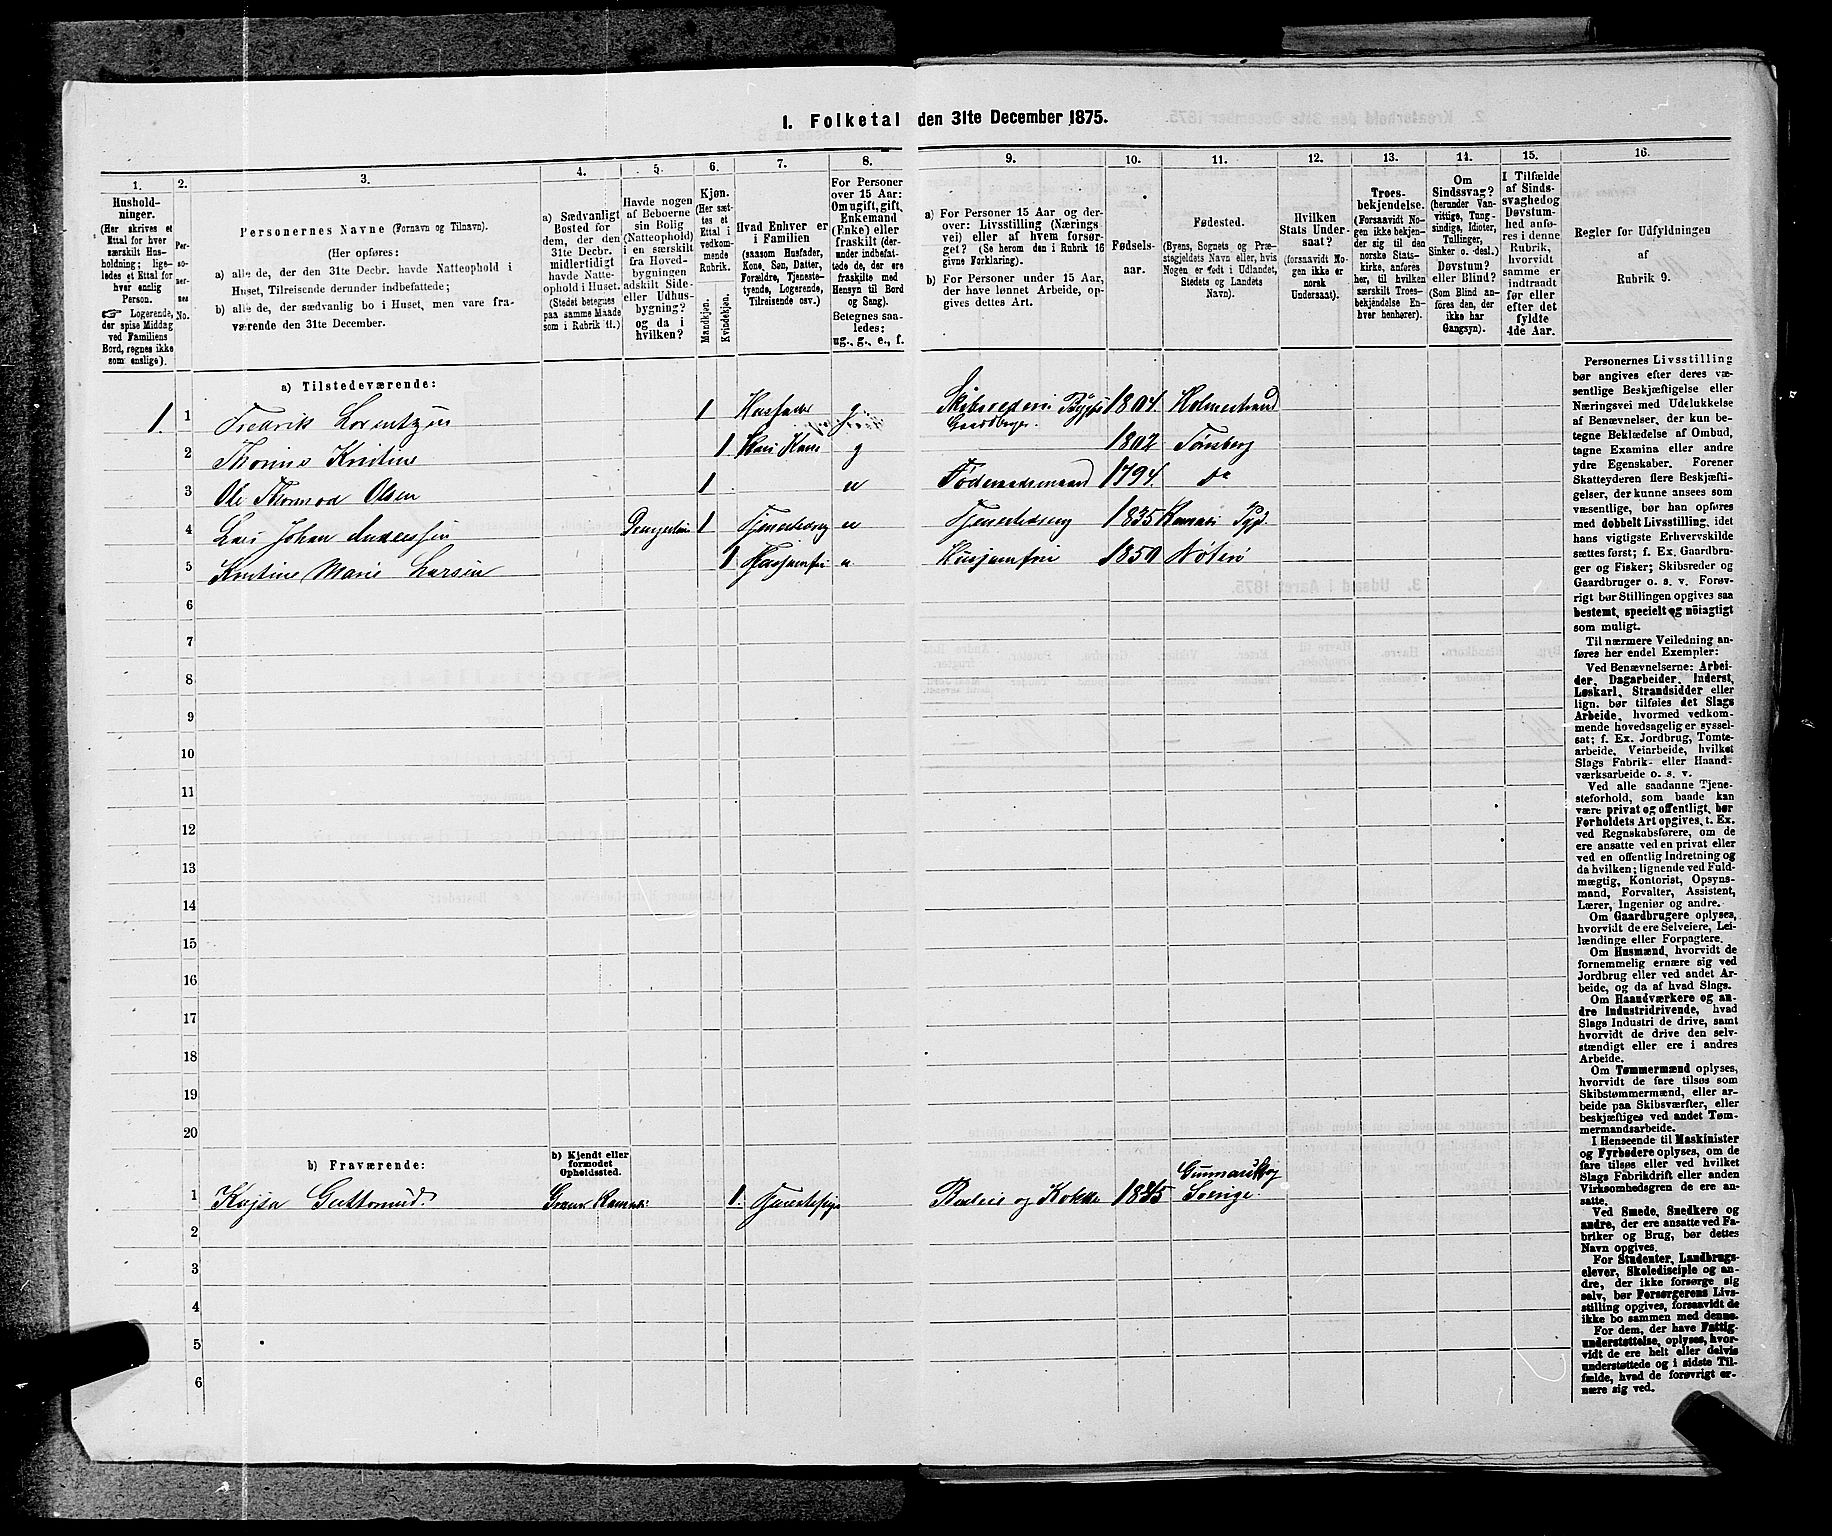 1. Folketal den 31te December 1875.
1.
Hushold-
ninger.
(Her skrives et
Ettal for hver
særskilt Hus-
holdning; lige-
ledes et Ettal for
hver enslig
Person.
Logerende,
der spise Middag
ved Familiens
Bord, regnes ikke
som enslige).
2.
Per-
so-
ner-
nes
No.
3.
Personernes Navne (Fornavn og Tilnavn).
(Her opføres:
a) alle de, der den 31te Decbr. havde Natteophold i
Huset, Tilreisende derunder indbefattede;
b) alle de, der sædvanlig bo i Huset, men vare fra-
værende den 31te December.
4.
a) Sædvanligt
Bosted for
dem, der den
31te Decbr.
midlertidigt
havde Natte-
ophold i Huset.
(Stedet betegnes
paa samme Maade
som i Rubrik 11.)
5.
Havde nogen
af Beboerne
sin Bolig
(Natteophold)
i en særskilt
fra Hoved-
bygningen
adskilt Side-
eller Udhus-
bygning?
og da i
hvilken?
6.
Kjøn.
(Her sæt-
tes et
Ettal i
vedkom-
mende
Rubrik.
Mandkjøn.
Kvindekjøn.
7.
Hvad Enhver er
i Familien
(saasom Husfader,
Kone, Søn, Datter,
Forældre, Tjeneste-
tyende, Logerende,
Tilreisende osv.)
8.
For Personer
over 15 Aar:
Om ugift, gift,
Enkemand
(Enke) eller
fraskilt (der-
under indbefat-
tede de, der ere
fraskilte med
Hensyn til Bord
og Sang).
Betegnes saa-
ledes:
ug., g., e., f.
9.
a) For Personer 15 Aar og der-
over: Livsstilling (Nærings-
vei) eller af hvem forsør-
get? (Se herom den i Rubrik 16
givne Forklaring).
b) For Personer under 15 Aar,
der have lønnet Arbeide, op-
gives dettes Art.
10.
Fødsels-
aar.
11.
Fødested.
(Byens, Sognets og Præ-
stegjeldets Navn eller, hvis
Nogen er født i Udlandet,
Stedets og Landets
Navn).
12.
Hvilken
Stats Under-
saat?
(forsaavidt No-
gen ikke er
norsk
Undersaat).
13.
Troes-
bekjendelse.
(Forsaavidt No-
gen ikke bekjen-
der sig til den
norske Stats-
kirke, anføres
her, til hvilken
særskilt Troes-
bekjendelse En-
hver henhører).
14.
Om
Sindssvag?
(herunder Van-
vittige, Tung-
sindige, Idioter,
Tullinger,
Sinker o. desl.)
Døvstum?
eller Blind?
(Som Blind an-
føres den, der
ikke har
Gangsyn).
15.
I Tilfælde
af Sinds-
svaghed og
Døvstum-
hed anfø-
res i denne
Rubrik,
hvorvidt
samme er
indtraadt
før eller
efter det
fyldte
4de Aar.
16.
Regler for Udfyldningen
af
Rubrik 9.
a) Tilstedeværende:
1. 1 Fredrik Lorentzen 1 Husfader g Skibsrederi Gaardbruger. 1804. Holmestrand
2 Thorine Kristine 1 Hans Kone g 1802 Tønsberg
3 Ole Thormod Olsen 1 1794. do
4 Lars Johan Anderssen 1 Tjenestedreng u Tjenestedreng 1835
5 Kristine Marie Larsen 1 Husjomfru u Husjomfru 1850 Nøterø
6
7
8
9
10
11
12
13
14
15
16
17
18
19
20
b) Fraværende:
b) Kjendt eller
formodet
Opholdssted.
1 Kajsa Guttormsd. 1. Tjenestepige og Kokke 1845 Sverige.
2
3
4
5
6
Personernes Livsstilling
bør angives efter deres væ-
sentlige Beskjæftigelse eller
Næringsvei med Udelukkelse
af Benævnelser, der kun be-
tegne Beklædelse af Ombud,
tagne Examina eller andre
ydre Egenskaber. Forener
Skatteyderen flere Beskjæfti-
gelser, der kunne ansees som
væsentlige, bør han opføres
med dobbelt Livsstilling, idet
hans vigtigste Erhvervskilde
sættes først; f. Ex. Gaardbru-
ger og Fisker; Skibsreder og
Gaardbruger o. s. v. Forøv-
rigt bør Stillingen opgives saa
bestemt, specielt og nöiagtigt
som muligt.
Til nærmere Veiledning an-
føres her endel Exempler:
Ved Benævnelserne: Arbei-
der, Dagarbeider, Inderst,
Løskarl, Strandsidder eller
lign. bør tilføies det Slags
Arbeide, hvormed vedkom-
mende hovedsagelig er syssel-
sat; f. Ex. Jordbrug, Tomte-
arbeide, Veiarbeide, hvilket
Slags Fabrik- eller Haand-
værksarbeide o. s. v.
Ved alle saadanne Tjene-
steforhold, som baade kan
være privat og offentligt, bør
Forholdets Art opgives, t. Ex.
ved Regnskabsførere, om de
ere ansatte ved en privat eller
ved en offentlig Indretning og
da hvilken; lignende ved Fuld-
mægtig, Kontorist, Opsyns-
mand, Forvalter, Assistent,
Lærer, Ingeniør og andre.
Om Gaardbrugere oplyses,
hvorvidt de ere Selveiere, Lei-
lændinge eller Forpagtere.
Om Husmænd, hvorvidt de
fornemmelig ernære sig ved
Jordbrug eller ved andet Ar-
beide, og da af hvad Slags.
Om Haandværkere og an-
dre Industridrivende, hvad
Slags Industri de drive, samt
hvorvidt de drive den selv-
stændigt eller ere i andres
Arbeide.
Om Tømmermænd oplyses,
hvorvidt de fare tilsøs som
Skibstømmermænd, eller ar-
beide paa Skibsværfter, eller
beskjæftiges ved andet Tøm-
mermandsarbeide.
I Henseende til Maskinister
og Fyrbødere oplyses, om de
fare tilsøs eller ved hvilket
Slags Fabrikdrift eller anden
Virksomhedsgren de ere an-
satte.
Ved Smede, Snedkere og
andre, der ere ansatte ved Fa-
briker og Brug, bør dettes
Navn opgives.
For Studenter, Landbrugs-
elever, Skoledisciple og an-
dre, der ikke forsørge sig
selv, bør Forsørgerens Livs-
stilling opgives, forsaavidt de
ikke bo sammen med denne.
For dem, der have Fattig-
understøttelse, oplyses, hvor-
vidt de ere helt eller delvis
understøttede og i sidste Til-
fælde, hvad de forøvrigt er-
nære sig ved.